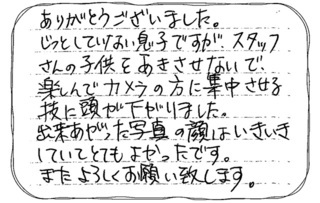 ありがとうございました。
じっとしていない息子ですが、スタッフ
さんの子供をあきさせないで、
楽しんでカメラの方に集中させる
技に頭が下がりました。
出来あがった写真の顔はいきいき
していてとてもよかったです。
またよろしくお願い致します。